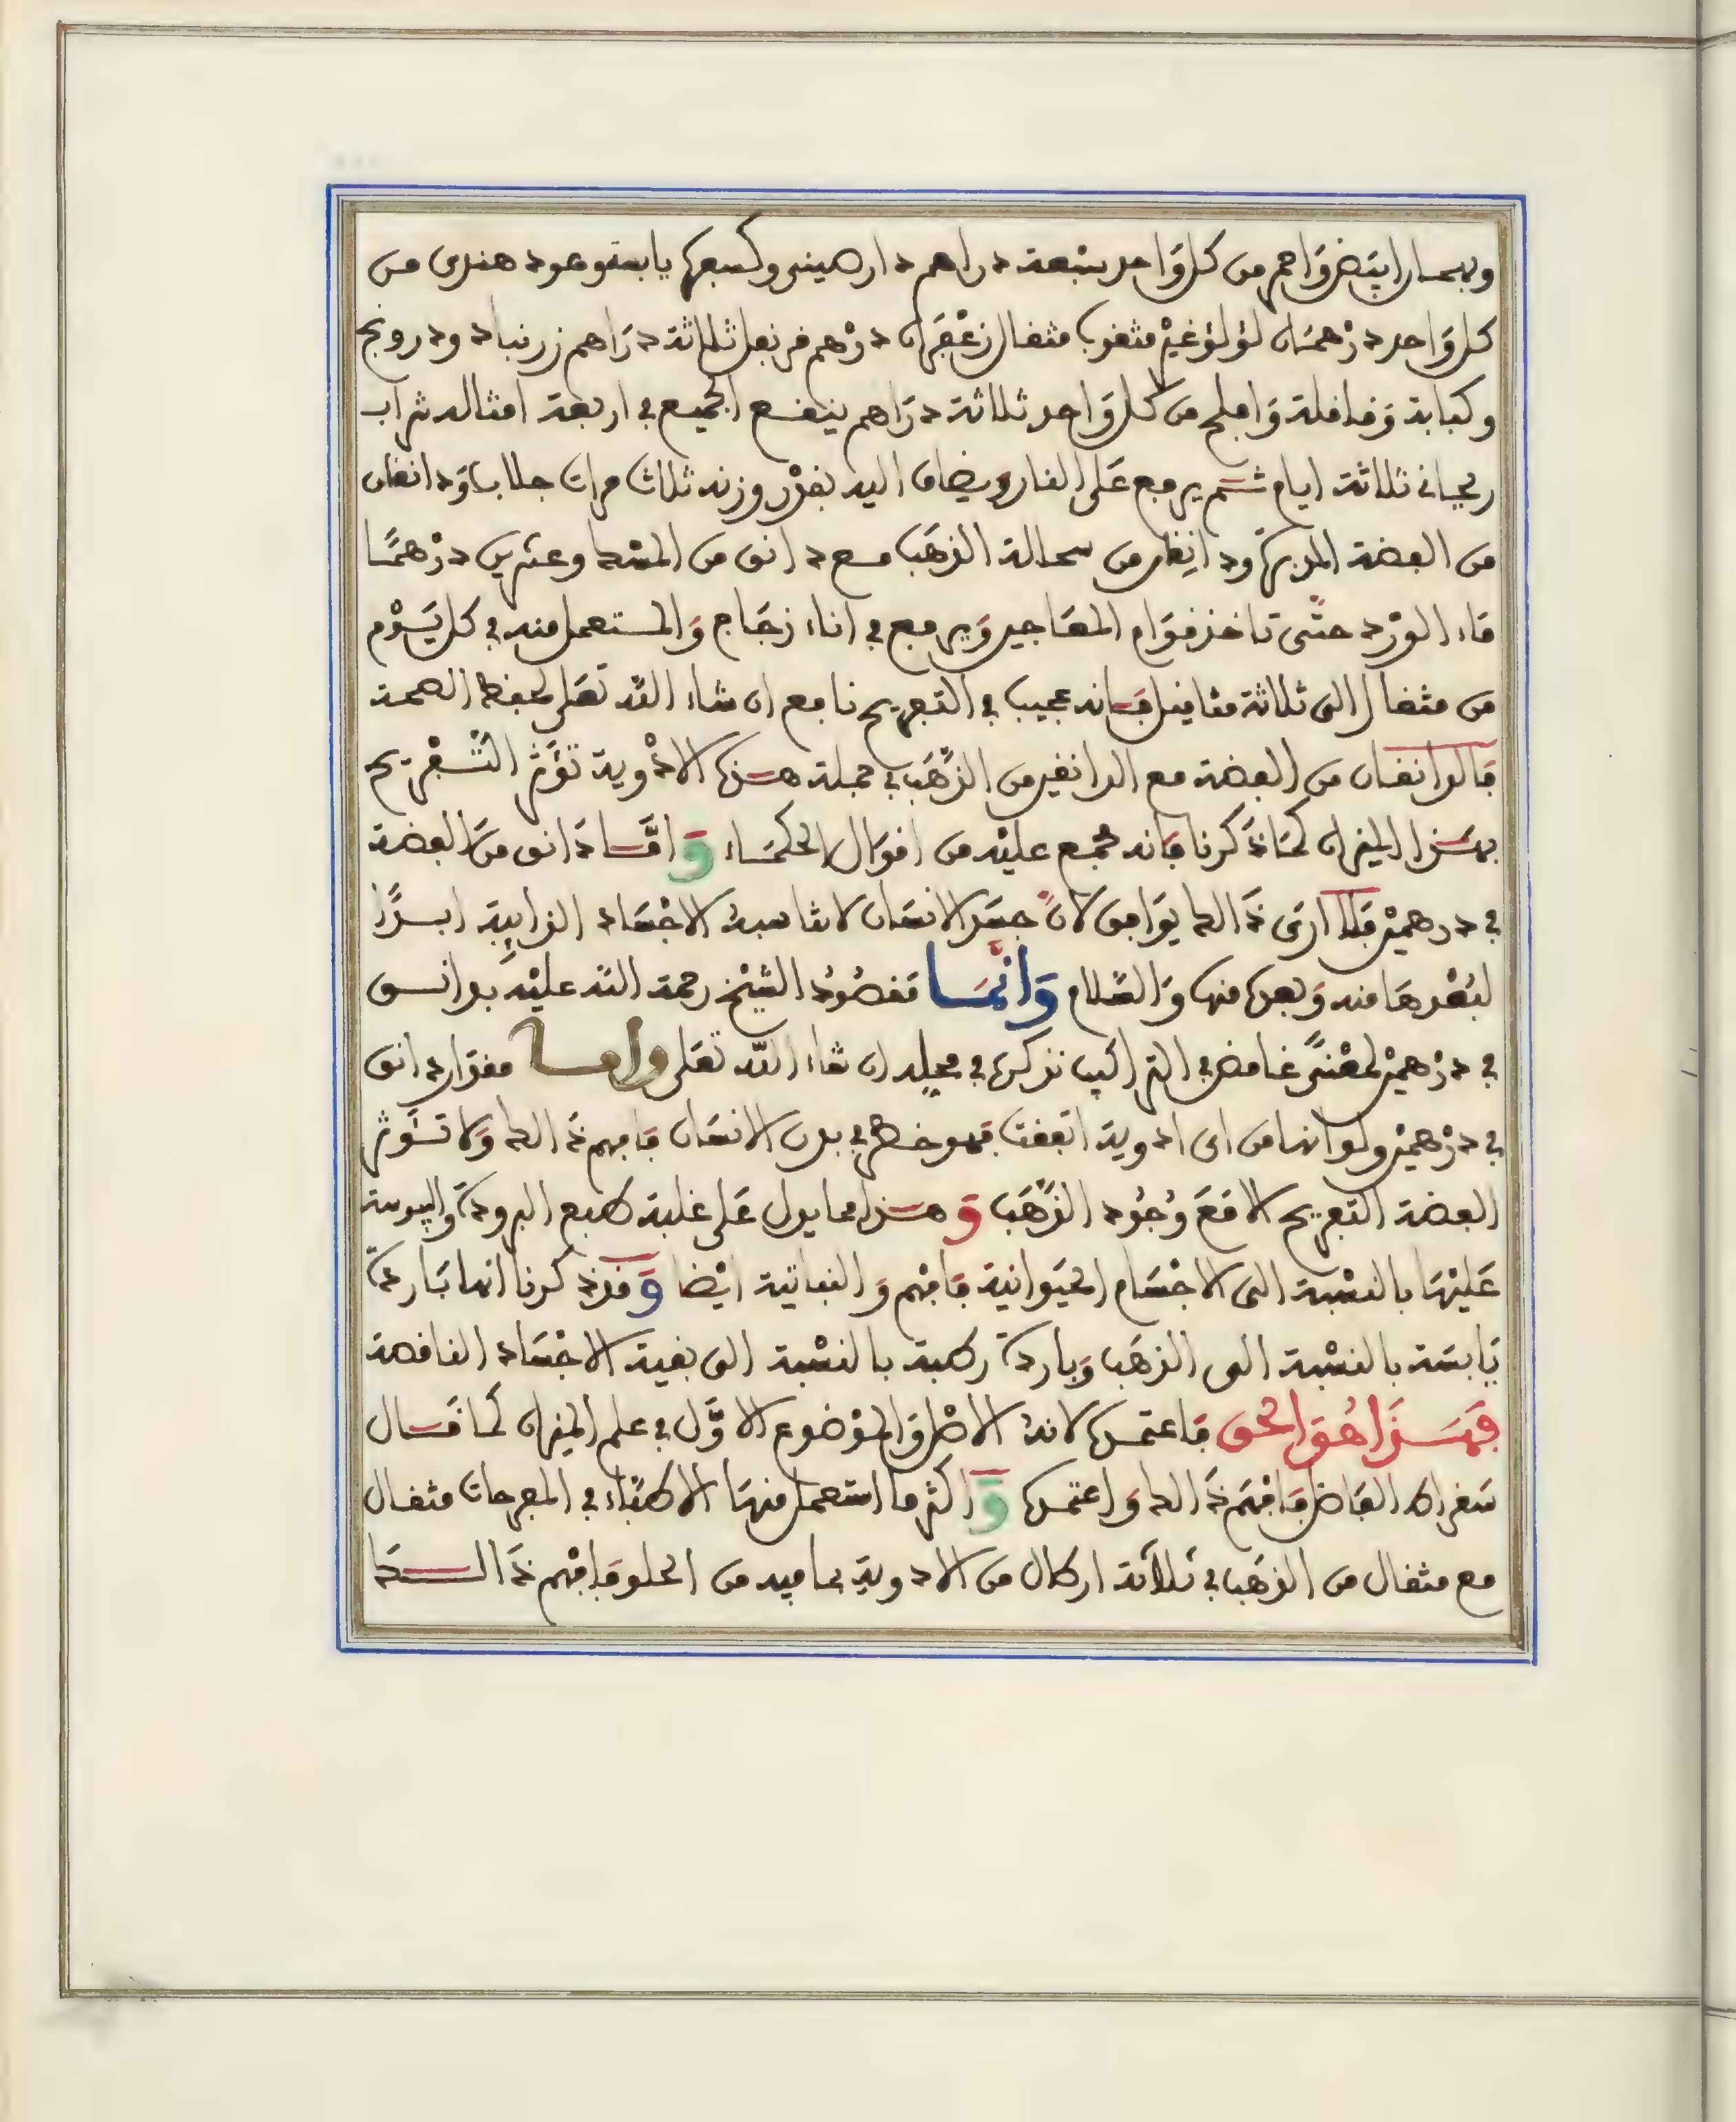 وبهمنان ابيض واحمر من كل واحد سبعة دراهم دارصيني وكسبرة يابسة وعود هندي من
كل وَاحد دِرْهمَان لؤلؤ غيرْ مثقوب مثقال زعْفَران درْهم قرنفل ثلاثة درَاهم زرنباد ودرونج
وكبابة وَقاقلة وَاملج من كل وَاحد ثلاثة درَاهم ينقع الجميع في اربعة امثاله شراب
ريحاني ثلاثة ايام ثم يرفع عَلى النار ويضاف اليه بقدْر وزنه ثلاث مرات جلاب وَدانقان
من الفضة المدبرة ودانِقان من سحالة الذهَب مع دانق من المسْك وعشرين درْهمًا
مَاء الورْد حتّى تاخذ قوَام المعَاجين وَيرفع في اناء زجَاج وَالمستعمل منه في كل يَوْم
من مثقال الى ثلاثة مثاقيل فَانه عجيب في التفريح نافع ان شاء الله تعَلى لحفظ الصحة
فالدانقان من الفضة مع الدانقين من الذّهَب في جملة هذه الادْوية تؤَثر التّفْريح
بهَذا الميزان كمَا ذَكرنا فَانه مجمع عليْه من اقوَال الحكمَاء وَامَّا دَانق مِنَ الفضة
في درهميْن فَلا ارَى ذَالك يوَافق لانّ جسَد الانسَان لا تناسبهُ الاجْسَاد الذايبِة ابدًا
لبُعْدهَا منه وَبعده منها وَالسّلام وَانّمَا مَقصُودُ الشيْخ رحمة الله عليْه بدانق
في درْهميْن لمعْنىً غامض في التراكيب نذكره في محلِه ان شاء الله تعَلى واما مقدَار دانق
في درْهميْن ولو انها من اي ادوية اتفقت فهو خطر في بدن الانسَان فافهم ذَالك وَلا تؤثر
الفضة التفريح الا مَعَ وُجُود الذّهَب وَهذا مما يدل عَلى غلبة طبع البرودة واليبوسة
عَليْهَا بالنسْبة الى الاجْسَام الحيَوانية فَافهم وَالنباتية ايْضا وَقد ذكرنا انها بَاردَة
يَابسَة بالنسْبة الى الذهَب وَباردة رطبة بالنسْبة الى بقية الاجْسَاد الناقصة
فهَذَا هُوَ الحق فَاعتمده لانهُ الاصْل وَالموْضوع الاوَّل في علم الميزان كما قال
سَقراط الفَاضل فَافهَم ذَالك وَاعتمده وَاكثر ما استعمل منهَا الاطبّاء في المفرحات مثقال
مع مثقال من الذهَب في ثلاَثة ارطال من الادويةِ بما فيه من الحلو فَافهم ذَالكَ